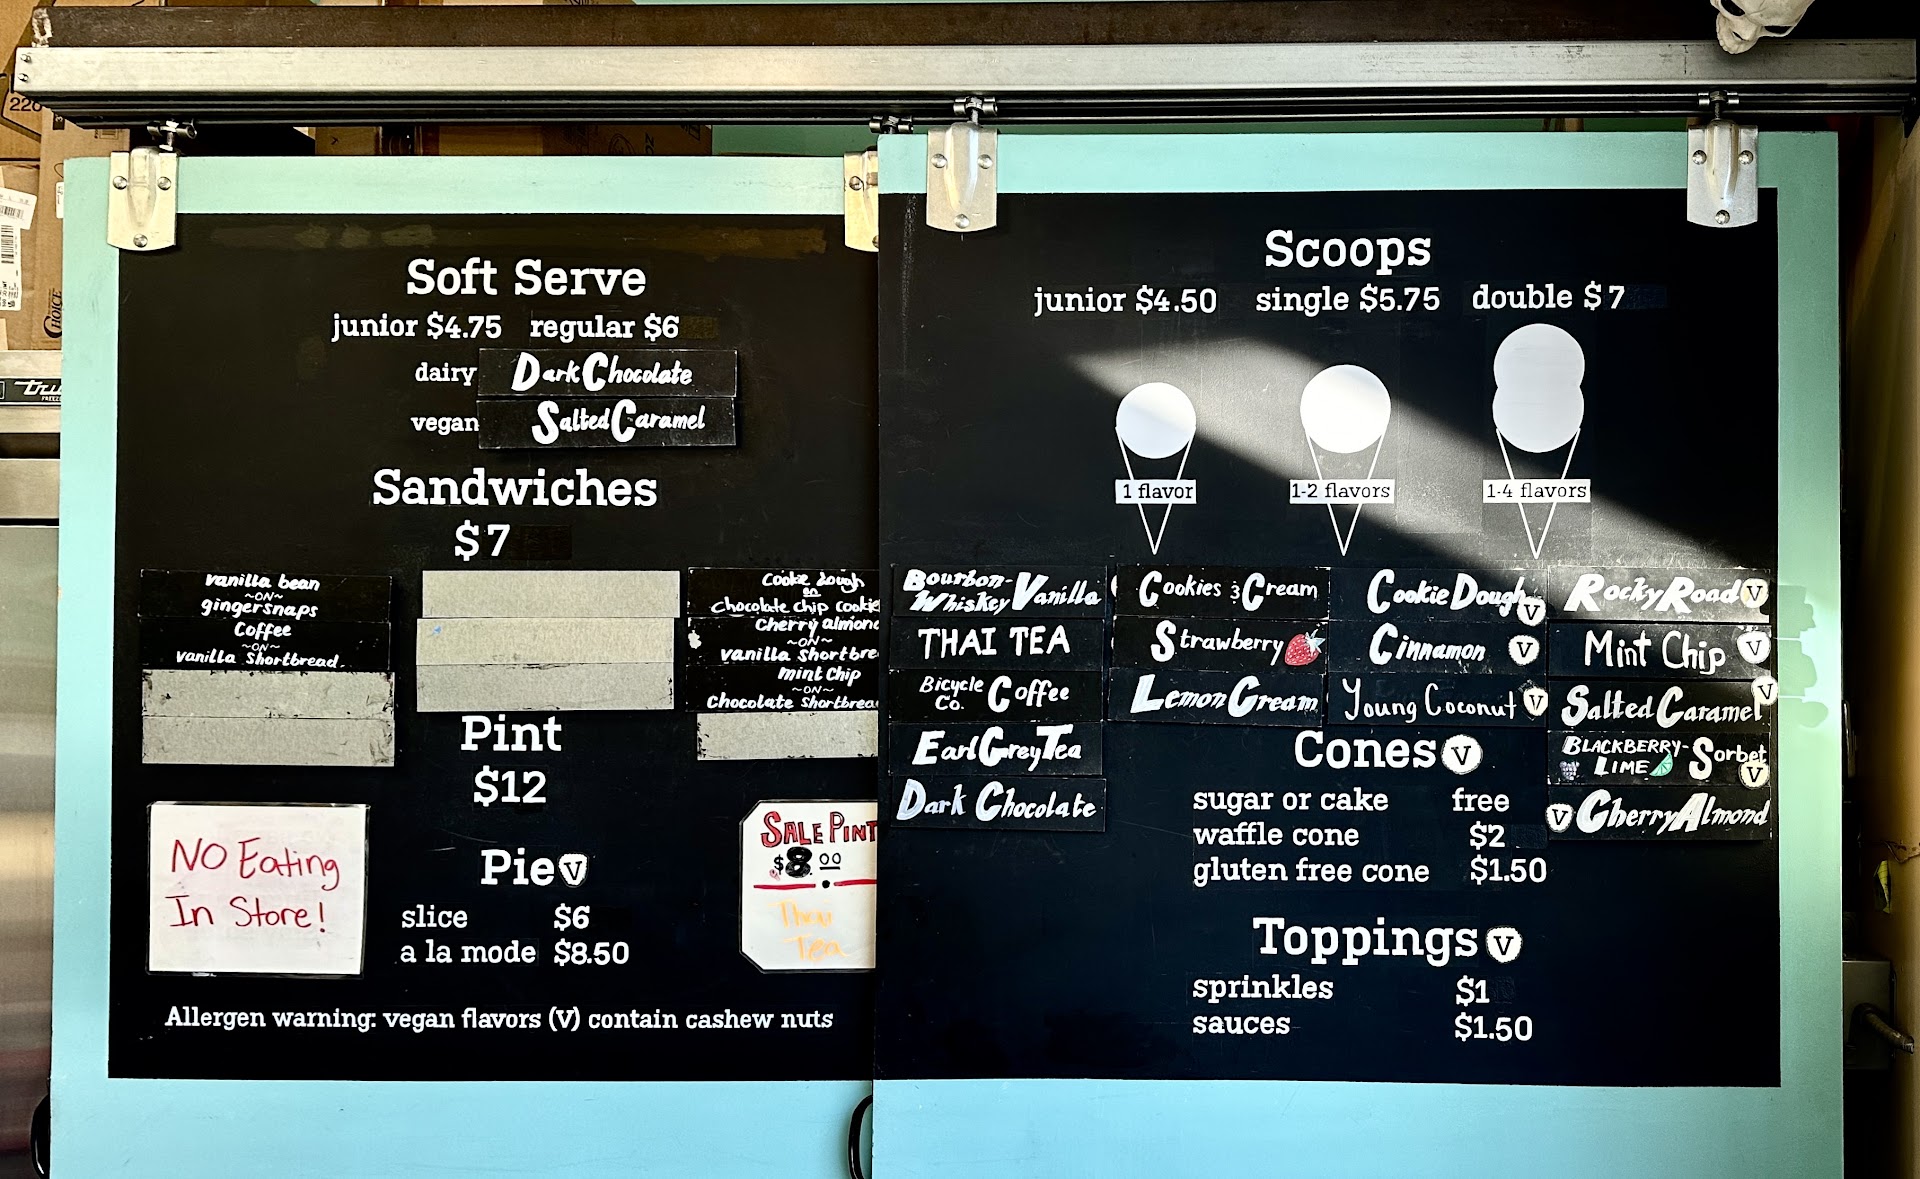 220
CHOICE
Soft Serve
junior $4.75 regular $6
dairy Dark Chocolate
vegan Salted Caramel
Sandwiches
$7
vanilla bean
~ON~
gingersnaps
Coffee
~ON~
vanilla shortbread
Cookie dough
on
chocolate chip cookie
cherry almond
~ON~
vanilla shortbre
mint chip
~ON~
chocolate shortbrea
Pint
$12
NO Eating
In Store!
Pie V
slice $6
a la mode $8.50
SALE PINT
$8.00
Thai
Tea
Allergen warning: vegan flavors (V) contain cashew nuts
Scoops
junior $4.50 single $5.75 double $7
1 flavor 1-2 flavors 1-4 flavors
Bourbon-
Whiskey Vanilla
THAI TEA
Bicycle
Co. Coffee
Earl Grey Tea
Dark Chocolate
Cookies & Cream
Strawberry
Lemon Cream
Cookie Dough V
Cinnamon V
Young Coconut V
Rocky Road V
Mint Chip V
Salted Caramel V
BLACKBERRY-
LIME Sorbet V
V Cherry Almond
Cones V
sugar or cake free
waffle cone $2
gluten free cone $1.50
Toppings V
sprinkles $1
sauces $1.50